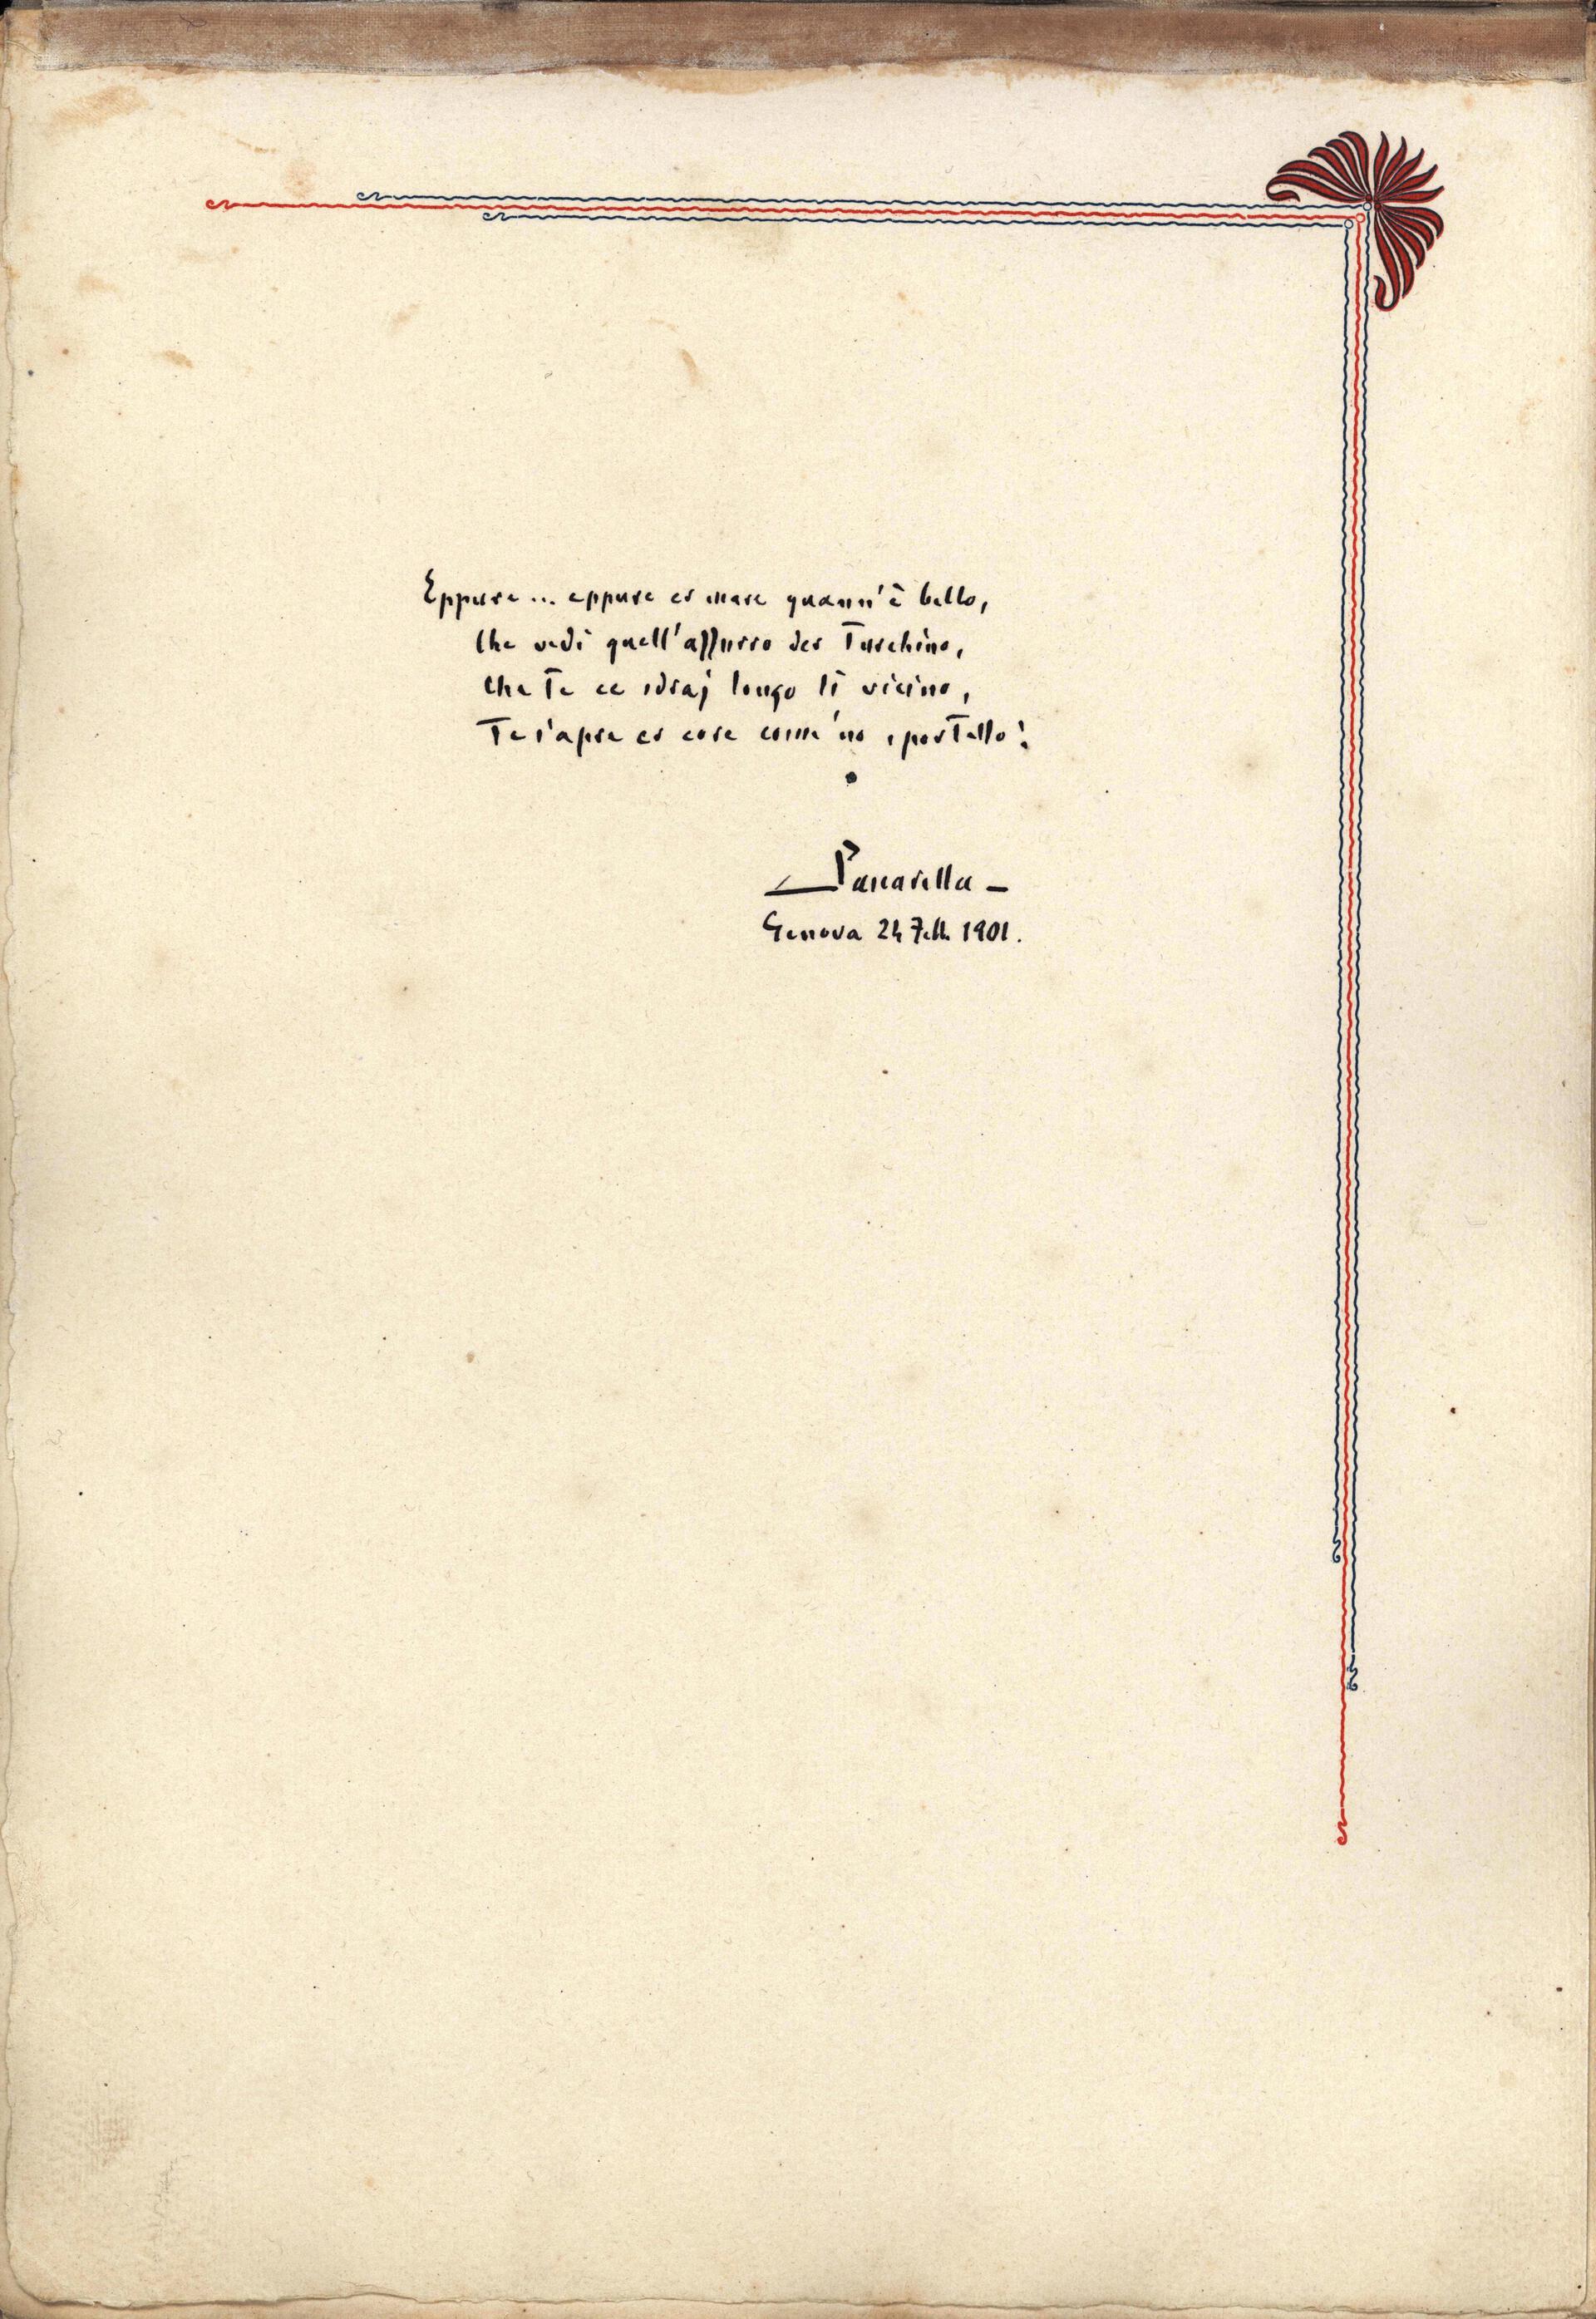 Eppure... eppure er mare quann'è bello,
Che vedi quell'azzurro der Turchino,
Che te ce sdraj longo lì vicino,
Te s'apre er core come 'no sportello!
Pascarella –
Genova 24 Febb. 1901.